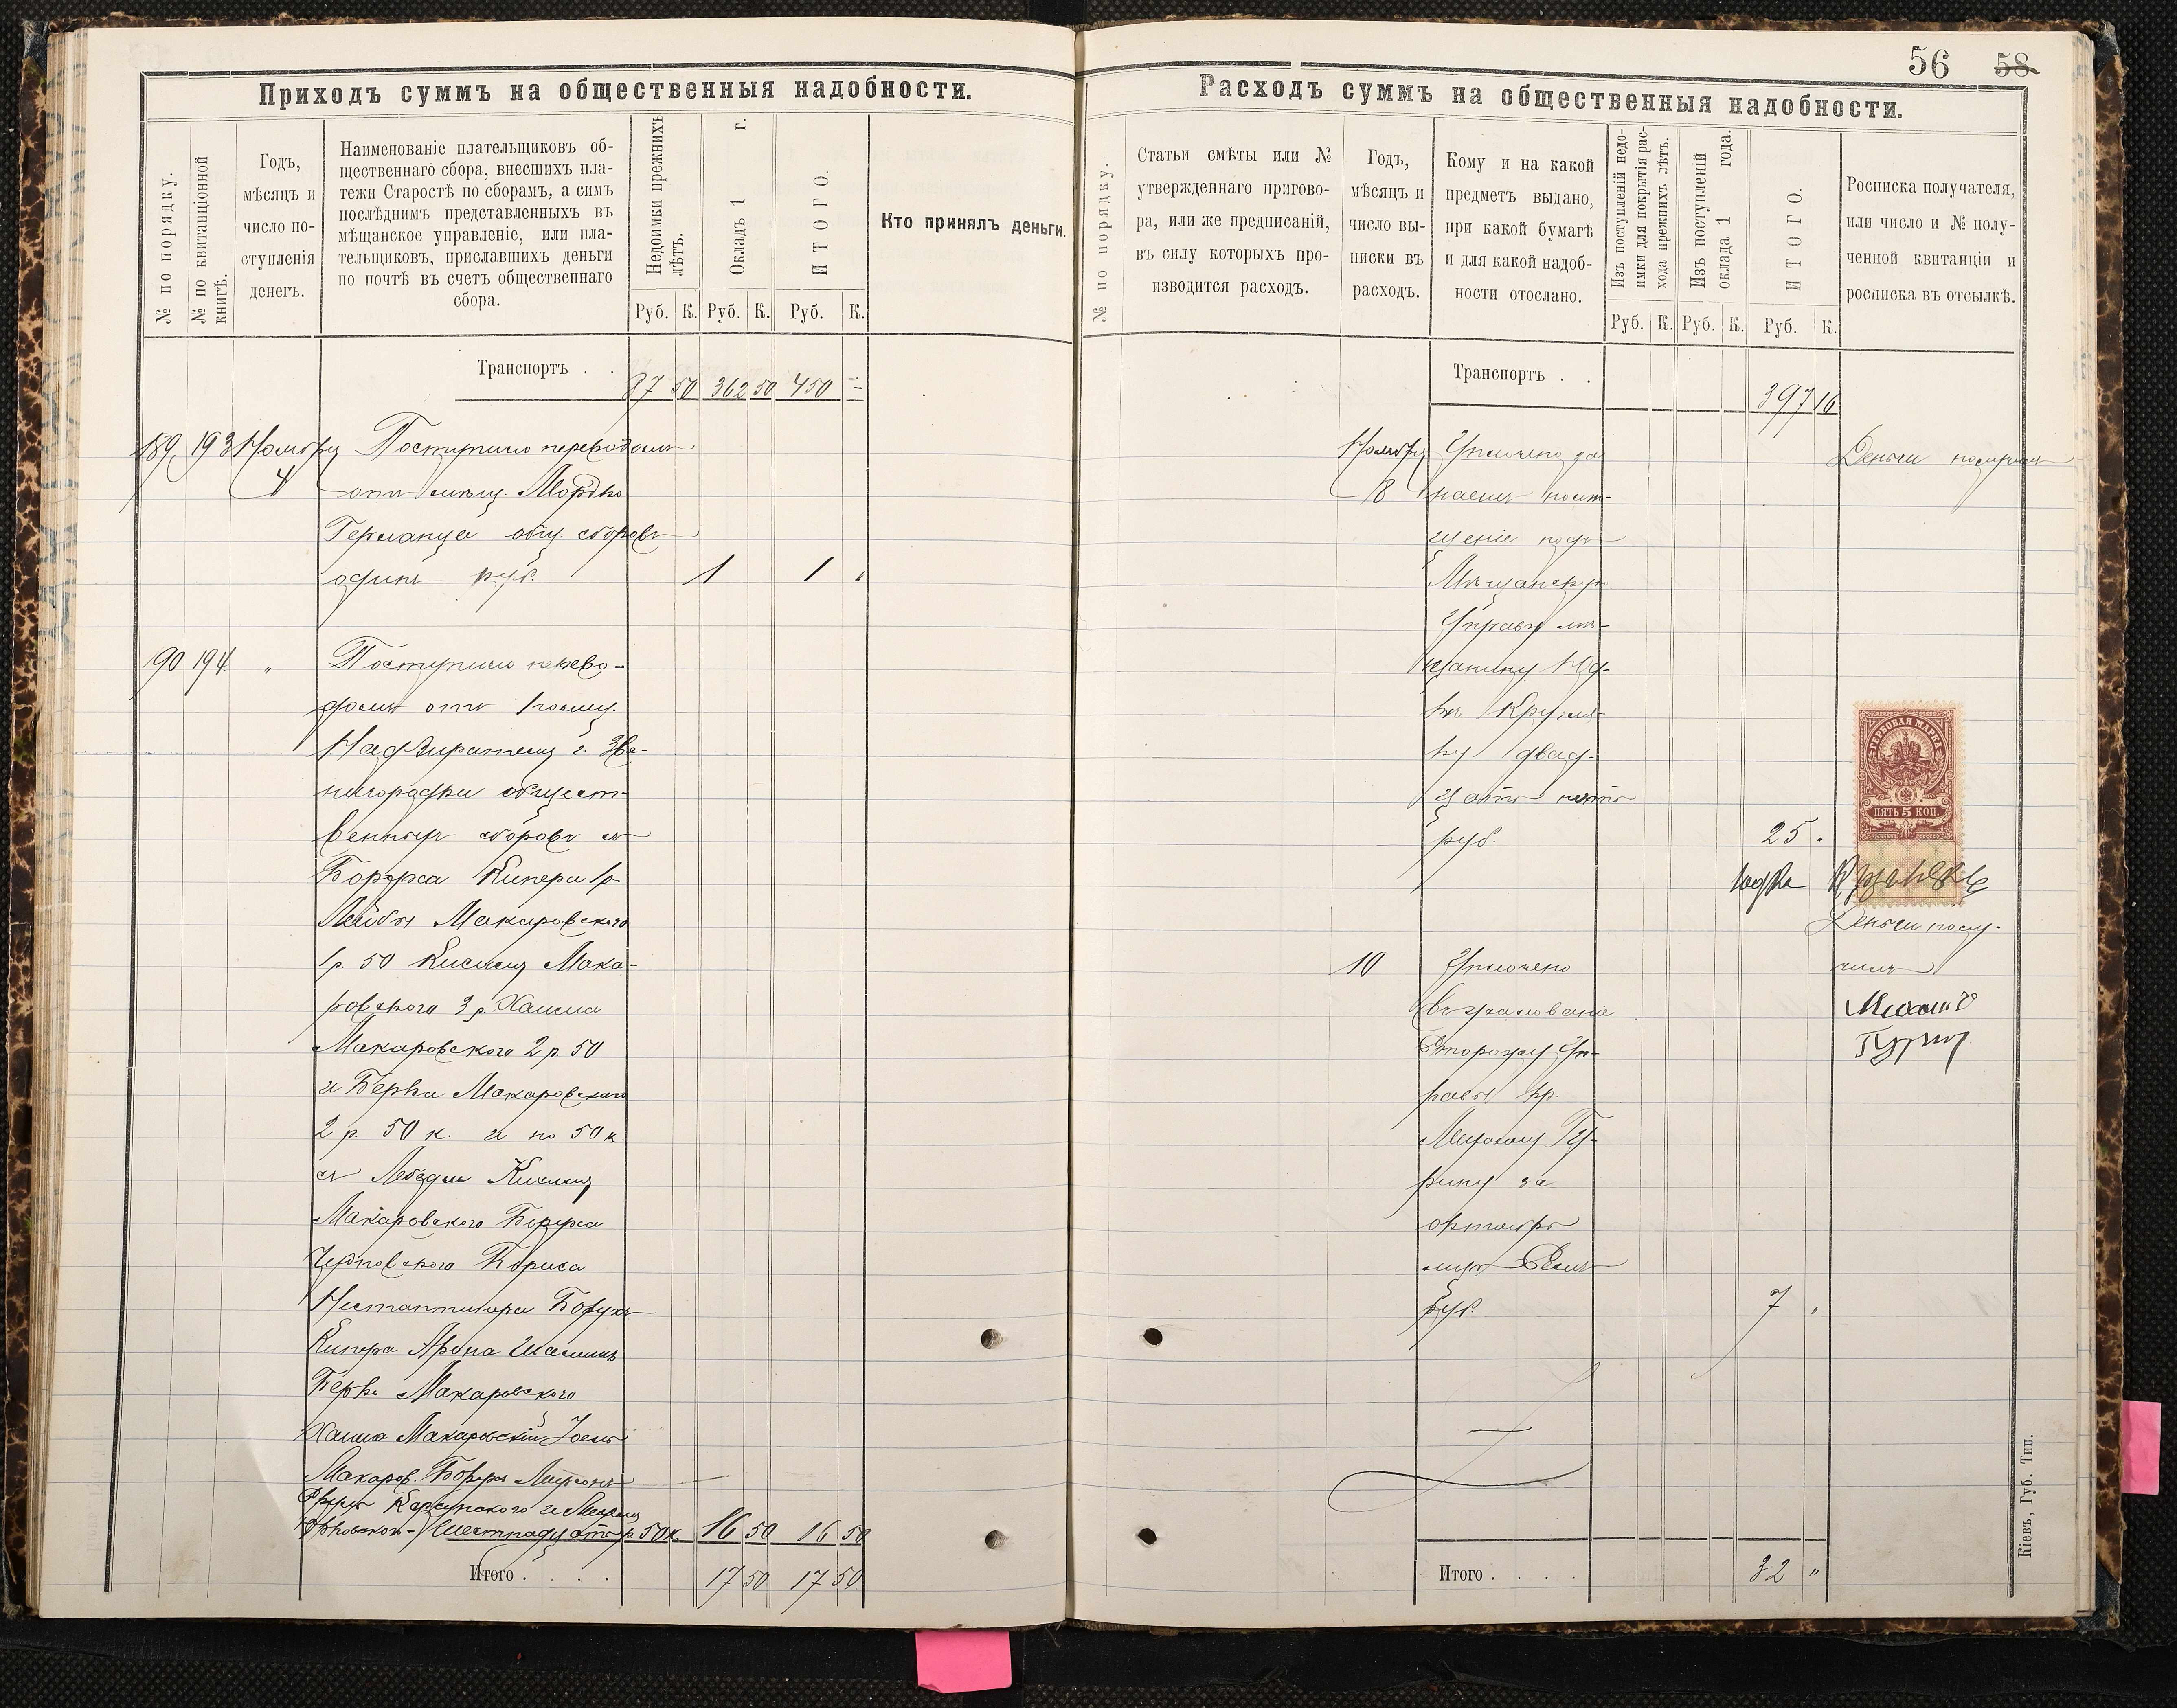 56 58
Приходъ суммъ на общественныя надобности.
№ по порядку.
№ по квитанціонной книгѣ.
Годъ,
мѣсяцъ и
число по-
ступленія
денегъ.
Наименованіе плательщиковъ об-
щественнаго сбора, внесшихъ пла-
тежи Старостѣ по сборамъ, а симъ
послѣднимъ представленныхъ въ
мѣщанское управленіе, или пла-
тельщиковъ, приславшихъ деньги
по почтѣ въ счетъ общественнаго
сбора.
Недоимки прежнихъ
лѣтъ.
Окладъ 1 г.
ИТОГО.
Руб. К. Руб. К. Руб. К.
Кто принялъ деньги.
Транспортъ . . 87 50 362 50 450 =
189 193 Ноября Поступило переводомъ
4 отъ мѣщ. Мордко
Германца общ. сборовъ
одинъ руб. 1 1 "
190 194 " Поступило перево-
домъ отъ Помощ.
Надзирателя г. Зве-
нигородки общест-
венныхъ сборовъ съ
Боруха Кипера 1 р.
Лейбы Макаровского
1 р. 50 Кисиля Мака-
ровского 3 р. Хаима
Макаровского 2 р. 50
и Берка Макаровского
2 р. 50 к. и по 50 к.
съ Кисиля
Макаровского Боруха
Бориса
Боруха
Кипера Арона
Берко Макаровского
Хаима Макаровскій
Макаров.
Шестнадцать р 50 к. 16 50 16 50
Итого . . . . 17 50 17 50
Расходъ суммъ на общественныя надобности.
№ по порядку.
Статьи смѣты или №
утвержденнаго пригово-
ра, или же предписаній,
въ силу которыхъ про-
изводится расходъ.
Годъ,
мѣсяцъ и
число вы-
писки въ
расходъ.
Кому и на какой
предметъ выдано,
при какой бумагѣ
и для какой надоб-
ности отослано.
Изъ поступленій недо-
имки для покрытія рас-
хода прежнихъ лѣтъ.
Изъ поступленій
оклада 1 года.
ИТОГО.
Руб. К. Руб. К. Руб. К.
Росписка получателя,
или число и № полу-
ченной квитанціи и
росписка въ отсылкѣ.
Транспортъ . . 397 16
Ноября Уплочено за Деньги получилъ
8 наемъ помѣ-
щеніе подъ
Мѣщанскую
Управу мѣ-
щанину Юд-
кѣ Кругля-
ку двад-
цать пять
руб. 25 "
ГЕРБОВАЯ МАРКА
ПЯТЬ 5 КОП.
Деньги полу-
чилъ
10 Уплочено
въ жалованіе
Сторожу Уп-
равы кр.
Гу-
рину за
октябрь
мѣс. Семь
руб. 7 "
Итого . . . . 32 "
Кіевъ, Губ. Тип.